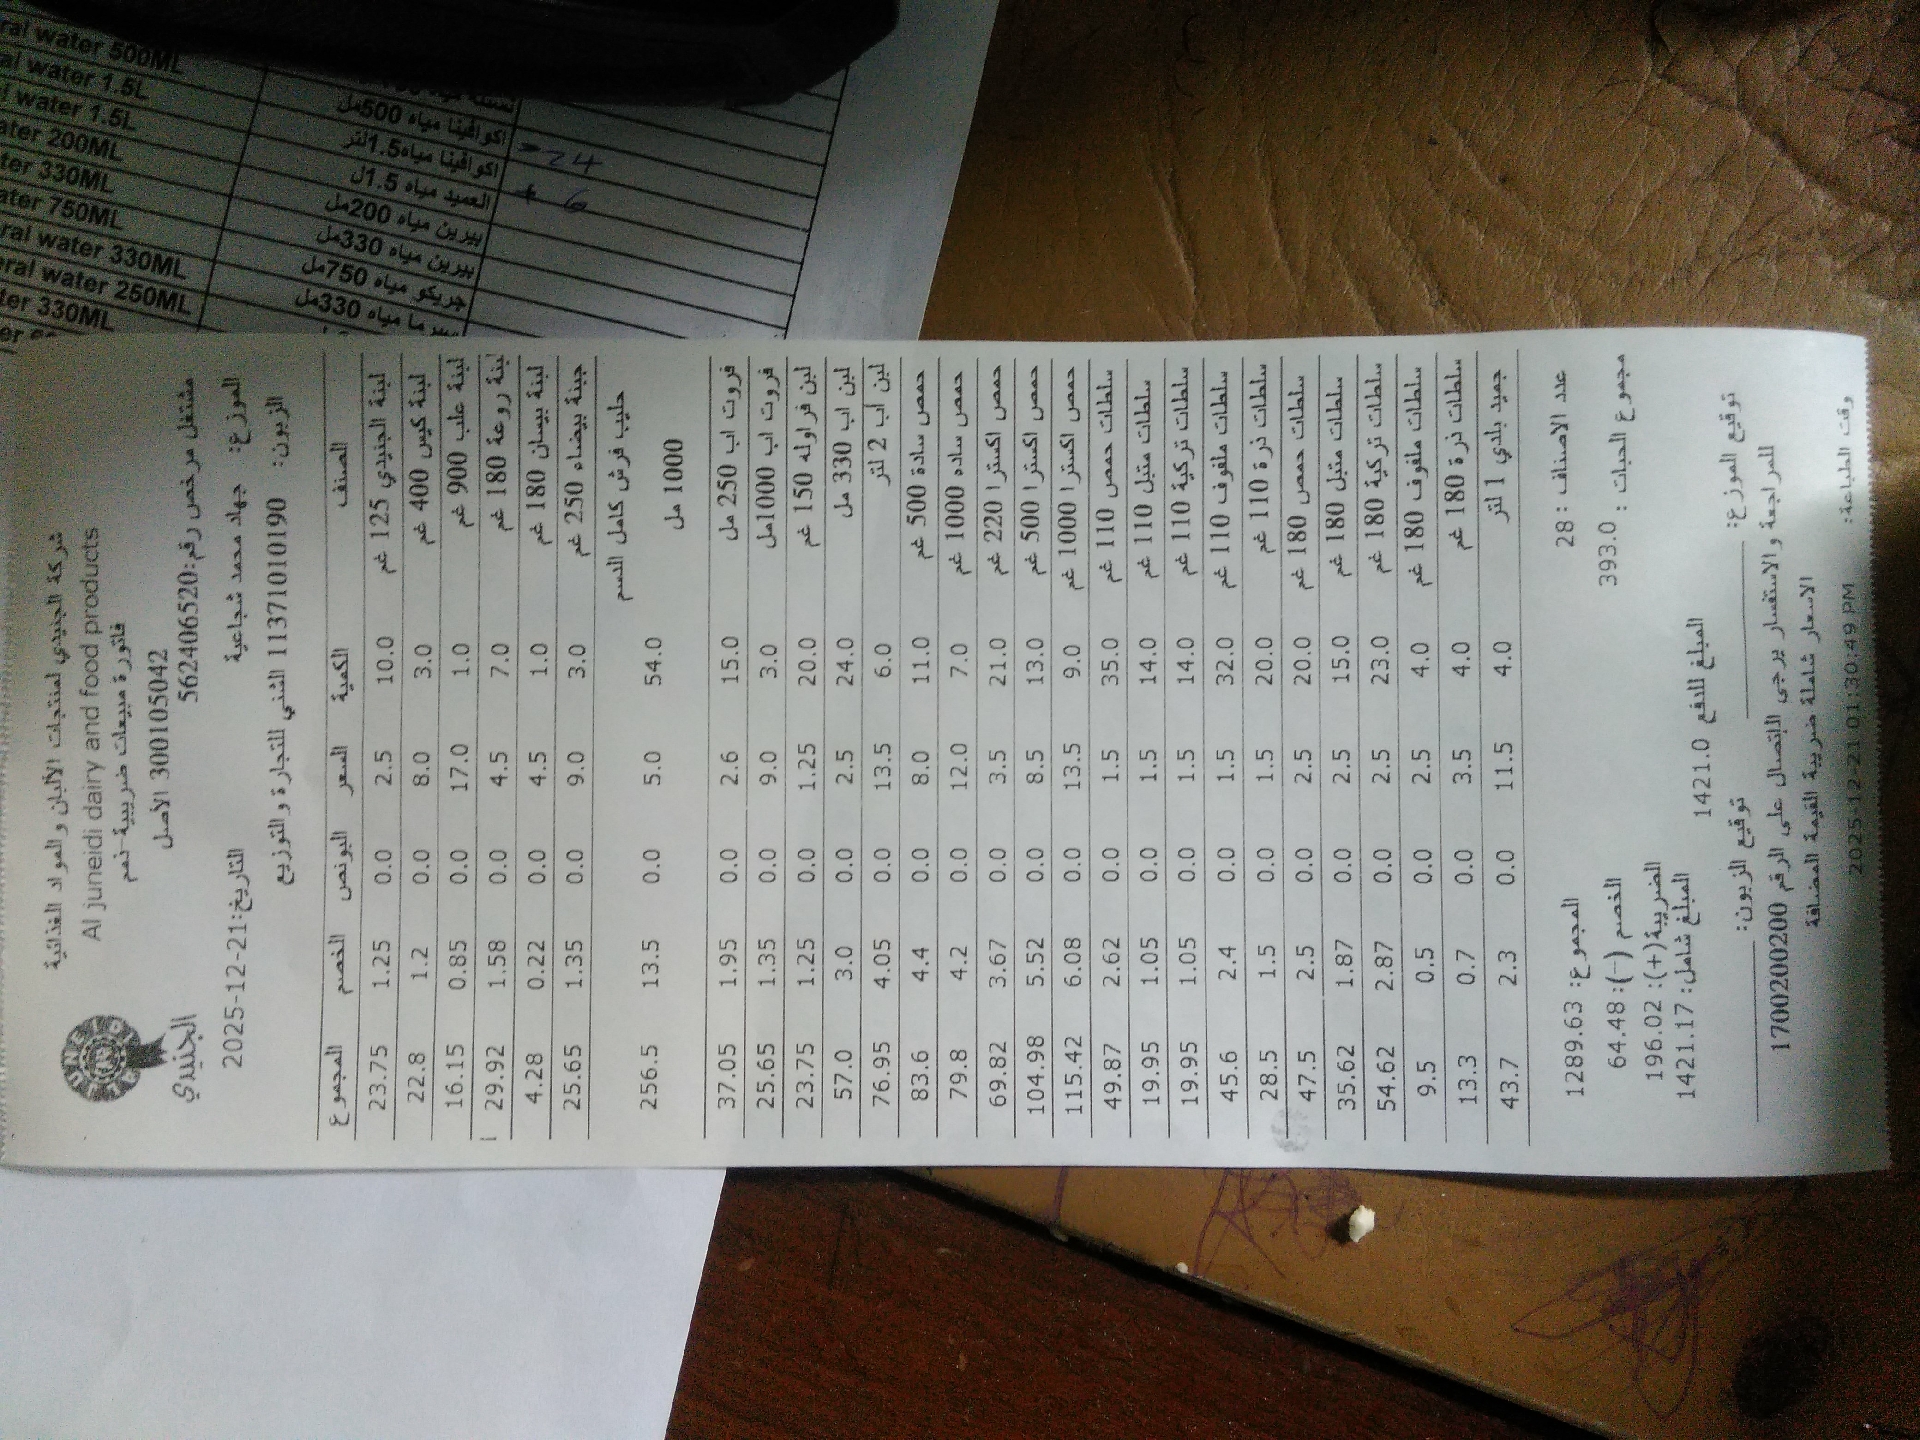 شركة الجنيدي لمنتجات الألبان والمواد الغذائية
Al juneidi dairy and food products
فاتورة مبيعات ضريبية-نعم
300105042 الأصل
مشتغل مرخص رقم:562406520
الجنيدي
الموزع: جهاد محمد شجاعية التاريخ:21-12-2025
الزبون: 11371010190 الشني للتجارة والتوزيع
الصنف الكمية السعر البونص الخصم المجموع
لبنة الجنيدي 125 غم 10.0 2.5 0.0 1.25 23.75
لبنة كيس 400 غم 3.0 8.0 0.0 1.2 22.8
لبنة علب 900 غم 1.0 17.0 0.0 0.85 16.15
لبنة روعة 180 غم 7.0 4.5 0.0 1.58 29.92
لبنة بيسان 180 غم 1.0 4.5 0.0 0.22 4.28
جبنة بيضاء 250 غم 3.0 9.0 0.0 1.35 25.65
حليب فرش كامل الدسم
1000 مل 54.0 5.0 0.0 13.5 256.5
فروت اب 250 مل 15.0 2.6 0.0 1.95 37.05
فروت اب 1000مل 3.0 9.0 0.0 1.35 25.65
لبن فراوله 150 غم 20.0 1.25 0.0 1.25 23.75
لبن اب 330 مل 24.0 2.5 0.0 3.0 57.0
لبن أب 2 لتر 6.0 13.5 0.0 4.05 76.95
حمص سادة 500 غم 11.0 8.0 0.0 4.4 83.6
حمص ساده 1000 غم 7.0 12.0 0.0 4.2 79.8
حمص اكسترا 220 غم 21.0 3.5 0.0 3.67 69.82
حمص اكسترا 500 غم 13.0 8.5 0.0 5.52 104.98
حمص اكسترا 1000 غم 9.0 13.5 0.0 6.08 115.42
سلطات حمص 110 غم 35.0 1.5 0.0 2.62 49.87
سلطات متبل 110 غم 14.0 1.5 0.0 1.05 19.95
سلطات تركية 110 غم 14.0 1.5 0.0 1.05 19.95
سلطات ملفوف 110 غم 32.0 1.5 0.0 2.4 45.6
سلطات ذرة 110 غم 20.0 1.5 0.0 1.5 28.5
سلطات حمص 180 غم 20.0 2.5 0.0 2.5 47.5
سلطات متبل 180 غم 15.0 2.5 0.0 1.87 35.62
سلطات تركية 180 غم 23.0 2.5 0.0 2.87 54.62
سلطات ملفوف 180 غم 4.0 2.5 0.0 0.5 9.5
سلطات ذرة 180 غم 4.0 3.5 0.0 0.7 13.3
جميد بلدي 1 لتر 4.0 11.5 0.0 2.3 43.7
عدد الاصناف : 28 المجموع: 1289.63
مجموع الحبات : 393.0 الخصم (-): 64.48
الضريبة(+): 196.02
المبلغ للدفع 1421.0 المبلغ شامل: 1421.17
توقيع الموزع: توقيع الزبون:
للمراجعة والاستفسار يرجى الاتصال على الرقم 1700200200
الاسعار شاملة ضريبة القيمة المضافة
وقت الطباعة: 2025-12-21 01:30:49 PM
ral water 500ML
al water 1.5L اكوافينا مياه 500مل
l water 1.5L اكوافينا مياه1.5لتر -24
ater 200ML العميد مياه 1.5ل + 6
ter 330ML بيرين مياه 200مل
ater 750ML بيرين مياه 330مل
ral water 330ML جريكو مياه 750مل
eral water 250ML مياه 330مل
ter 330ML